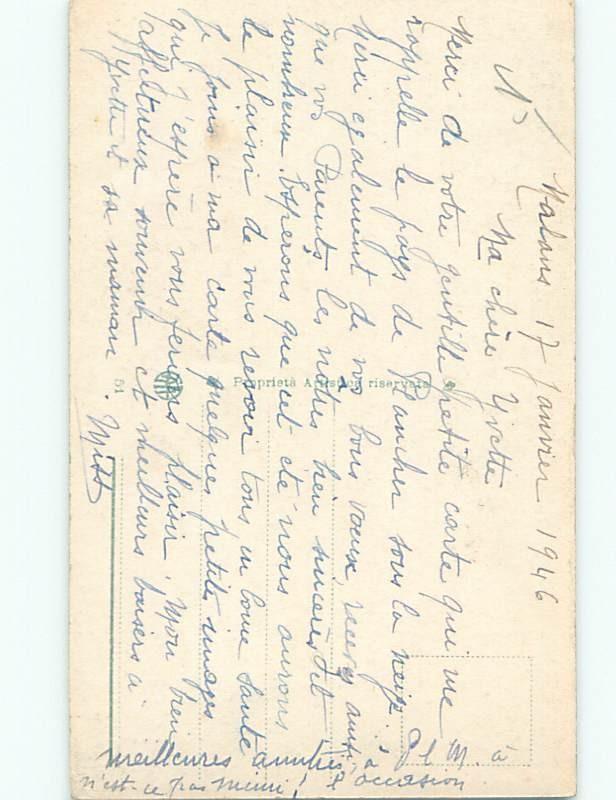 17 Janvier 1946
Ma chère Yvette
Merci de votre gentille petite carte qui me
rappelle le pays de Plancher sous la neige.
Merci également de vos bons vœux recevez ainsi
que vos Parents les nôtres bien sincères et
nombreux. Espérons que cet été nous aurons
le plaisir de vous revoir tous en bonne santé
Je joins à ma carte quelques petites images
qui j'espère vous ferons plaisir. Mon bien
affectueux souvenir et meilleurs baisers à
Yvette et sa maman.
meilleures amitiés à P l M. à
n'est-ce pas Mimi! l'occasion
Proprietà Artistica riservata
51